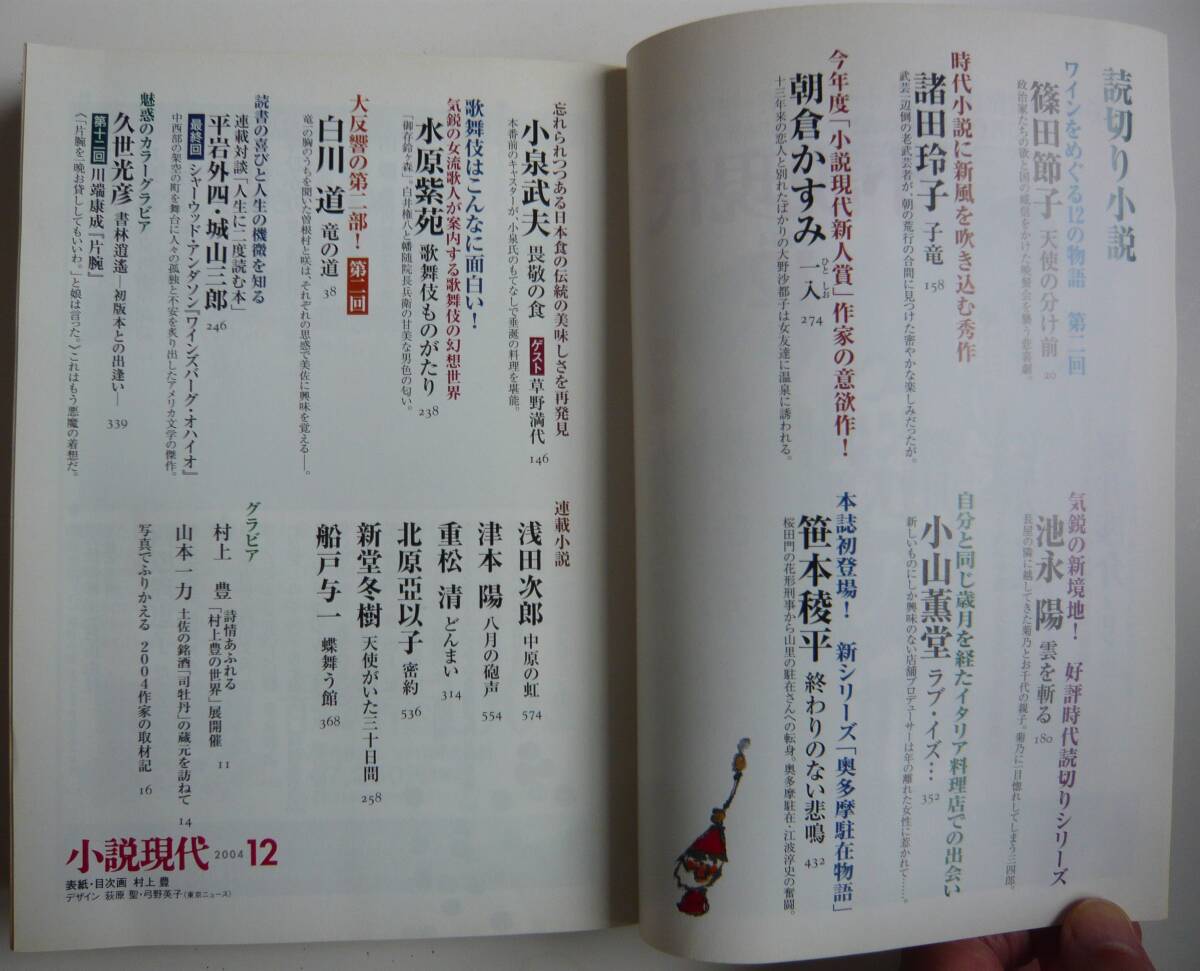 読切り小説
ワインをめぐる12の物語 第二回
篠田節子 天使の分け前 20
政治家たちの欲と国の威信をかけた晩餐会を襲う悲喜劇。
時代小説に新風を吹き込む秀作
諸田玲子 子竜 158
武芸一辺倒の老武芸者が、朝の荒行の合間に見つけた密やかな楽しみだったが。
今年度「小説現代新人賞」作家の意欲作！
朝倉かすみ 一入 274
ひとしお
十三年来の恋人と別れたばかりの大野沙都子は女友達に温泉に誘われる。
気鋭の新境地！ 好評時代読切りシリーズ
池永 陽 雲を斬る 180
長屋の隣に越してきた菊乃とお千代の親子。菊乃に一目惚れしてしまう三四郎。
自分と同じ歳月を経たイタリア料理店での出会い
小山薫堂 ラブ・イズ… 352
新しいものにしか興味のない店舗プロデューサーは年の離れた女性に惹かれて……。
本誌初登場！ 新シリーズ「奥多摩駐在物語」
笹本稜平 終わりのない悲鳴 432
桜田門の花形刑事から山里の駐在さんへの転身。奥多摩駐在・江波淳史の奮闘。
忘れられつつある日本食の伝統の美味しさを再発見
小泉武夫 畏敬の食 ゲスト 草野満代 146
本番前のキャスターが、小泉氏のもてなしで垂涎の料理を堪能。
歌舞伎はこんなに面白い！
気鋭の女流歌人が案内する歌舞伎の幻想世界
水原紫苑 歌舞伎ものがたり 238
「御存鈴ヶ森」。白井権八と幡随院長兵衛の甘美な男色の匂い。
大反響の第二部！ 第二回
白川 道 竜の道 38
竜一の胸のうちを聞いた曽根村と咲は、それぞれの思惑で美佐に興味を覚える──。
読書の喜びと人生の機微を知る
連載対談「人生に二度読む本」
平岩外四・城山三郎 246
最終回 シャーウッド・アンダソン『ワインズバーグ・オハイオ』
中西部の架空の町を舞台に人々の孤独と不安を炙り出したアメリカ文学の傑作。
魅惑のカラーグラビア
久世光彦 書林逍遙─初版本との出逢い─ 339
第十二回 川端康成『片腕』
〈「片腕を一晩お貸ししてもいいわ。」と娘は言った。〉これはもう悪魔の着想だ。
連載小説
浅田次郎 中原の虹 574
津本 陽 八月の砲声 554
重松 清 どんまい 314
北原亞以子 密約 536
新堂冬樹 天使がいた三十日間 258
船戸与一 蝶舞う館 368
グラビア
村上 豊 詩情あふれる「村上豊の世界」展開催 11
山本一力 土佐の銘酒「司牡丹」の蔵元を訪ねて 14
写真でふりかえる 2004作家の取材記 16
小説現代 2004 12
表紙・目次画 村上 豊
デザイン 萩原 聖・弓野英子（東京ニュース）